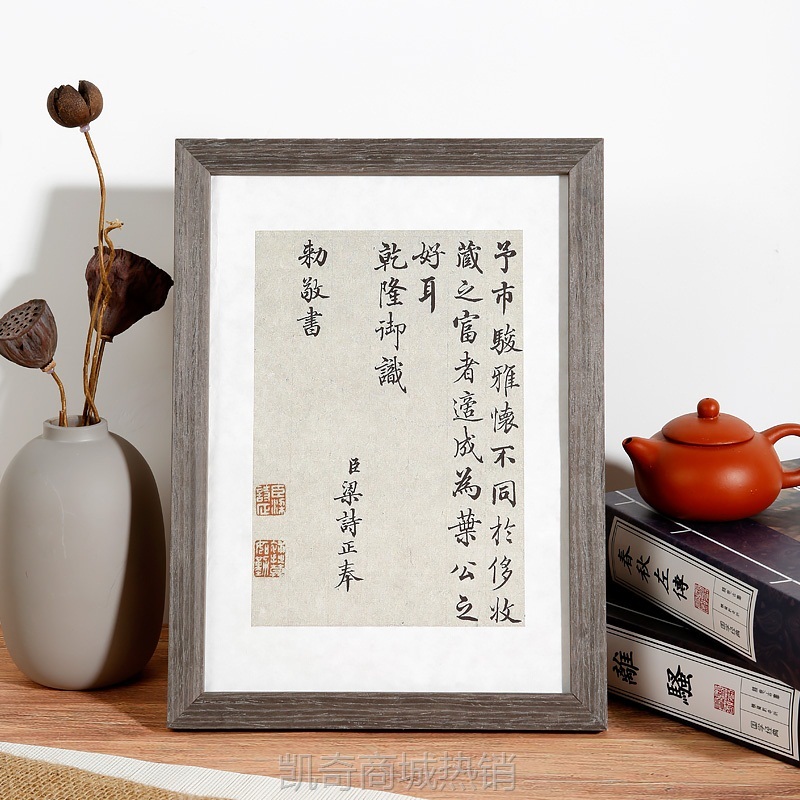 予市駿雅懷不同於侈收
藏之富者適成為葉公之
好耳
乾隆御識
臣梁詩正奉
勅敬書
春秋左傳
離騷
凯奇商城热销